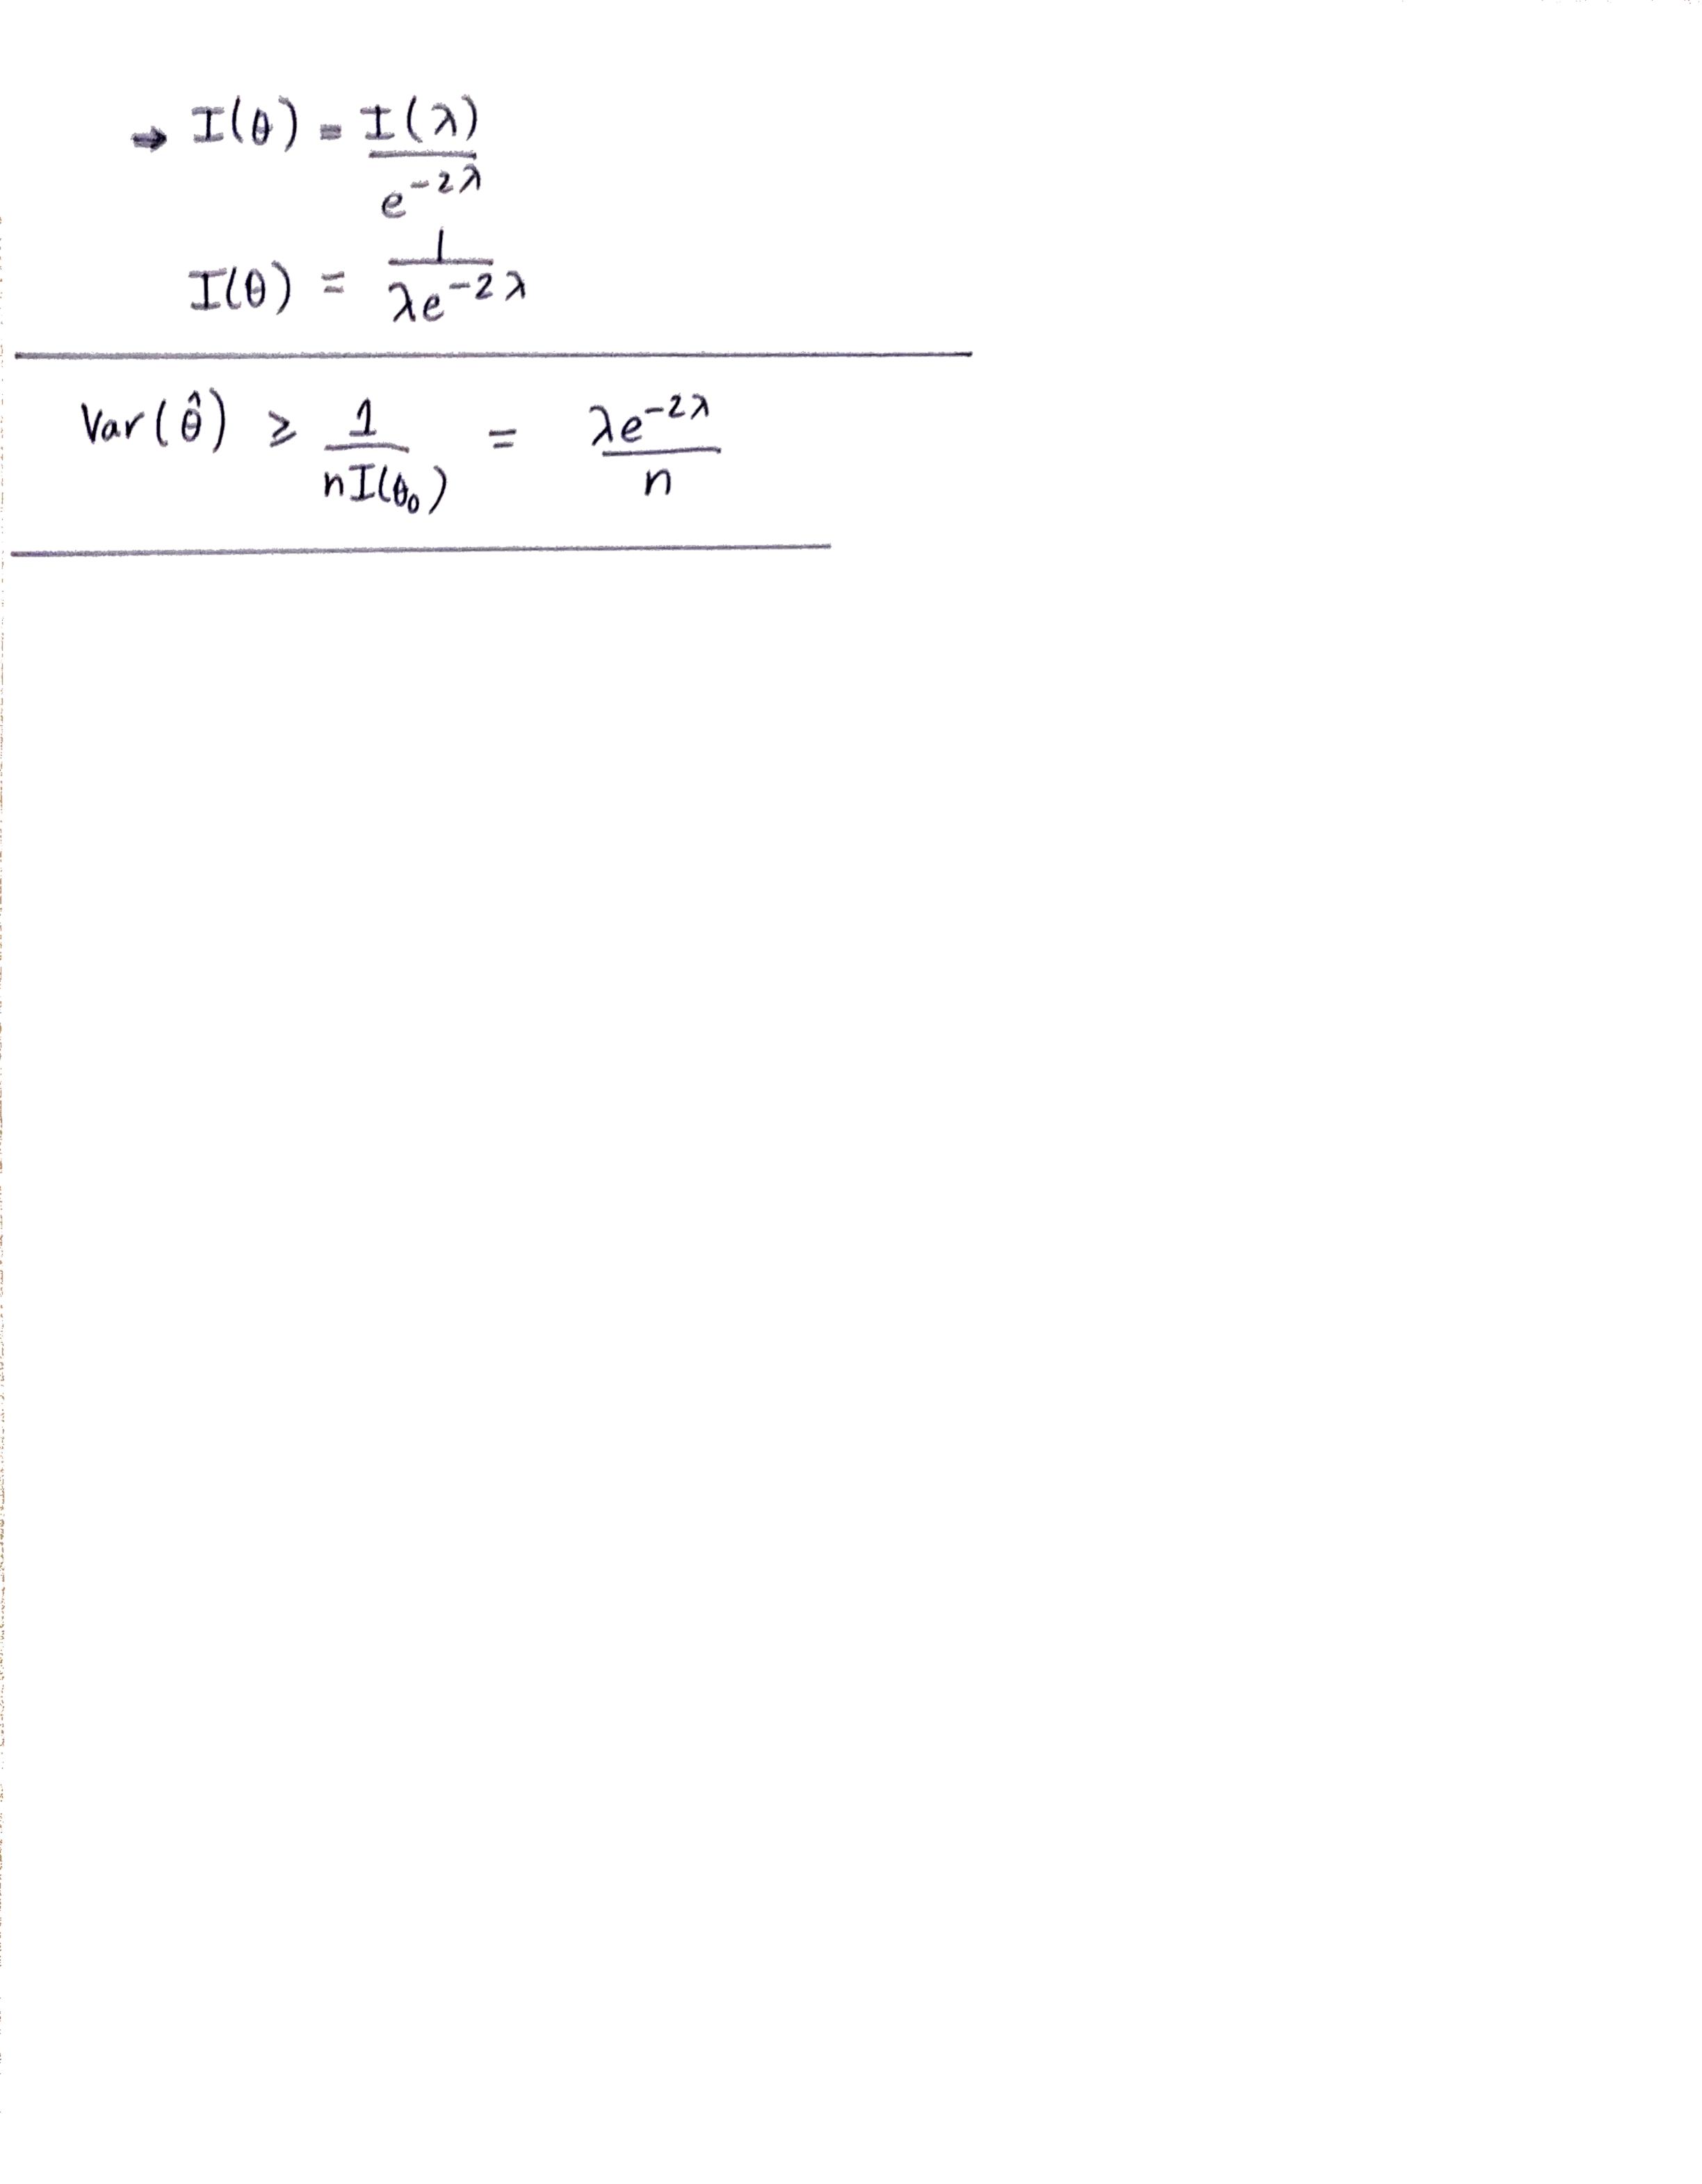 → I(θ) = I(λ) / e^{-2λ}
I(θ) = 1 / λe^{-2λ}
Var(θ̂) ≥ 1 / nI(θ₀) = λe^{-2λ} / n